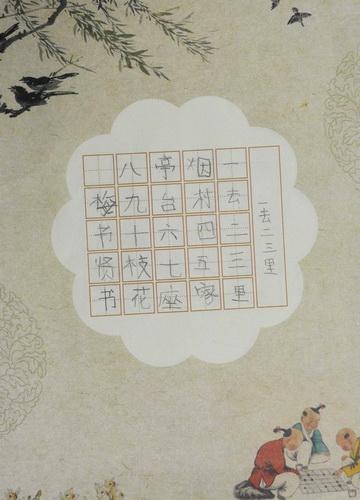 一去二三里
一去二三里
烟村四五家
亭台六七座
八九十枝花
梅书贤书